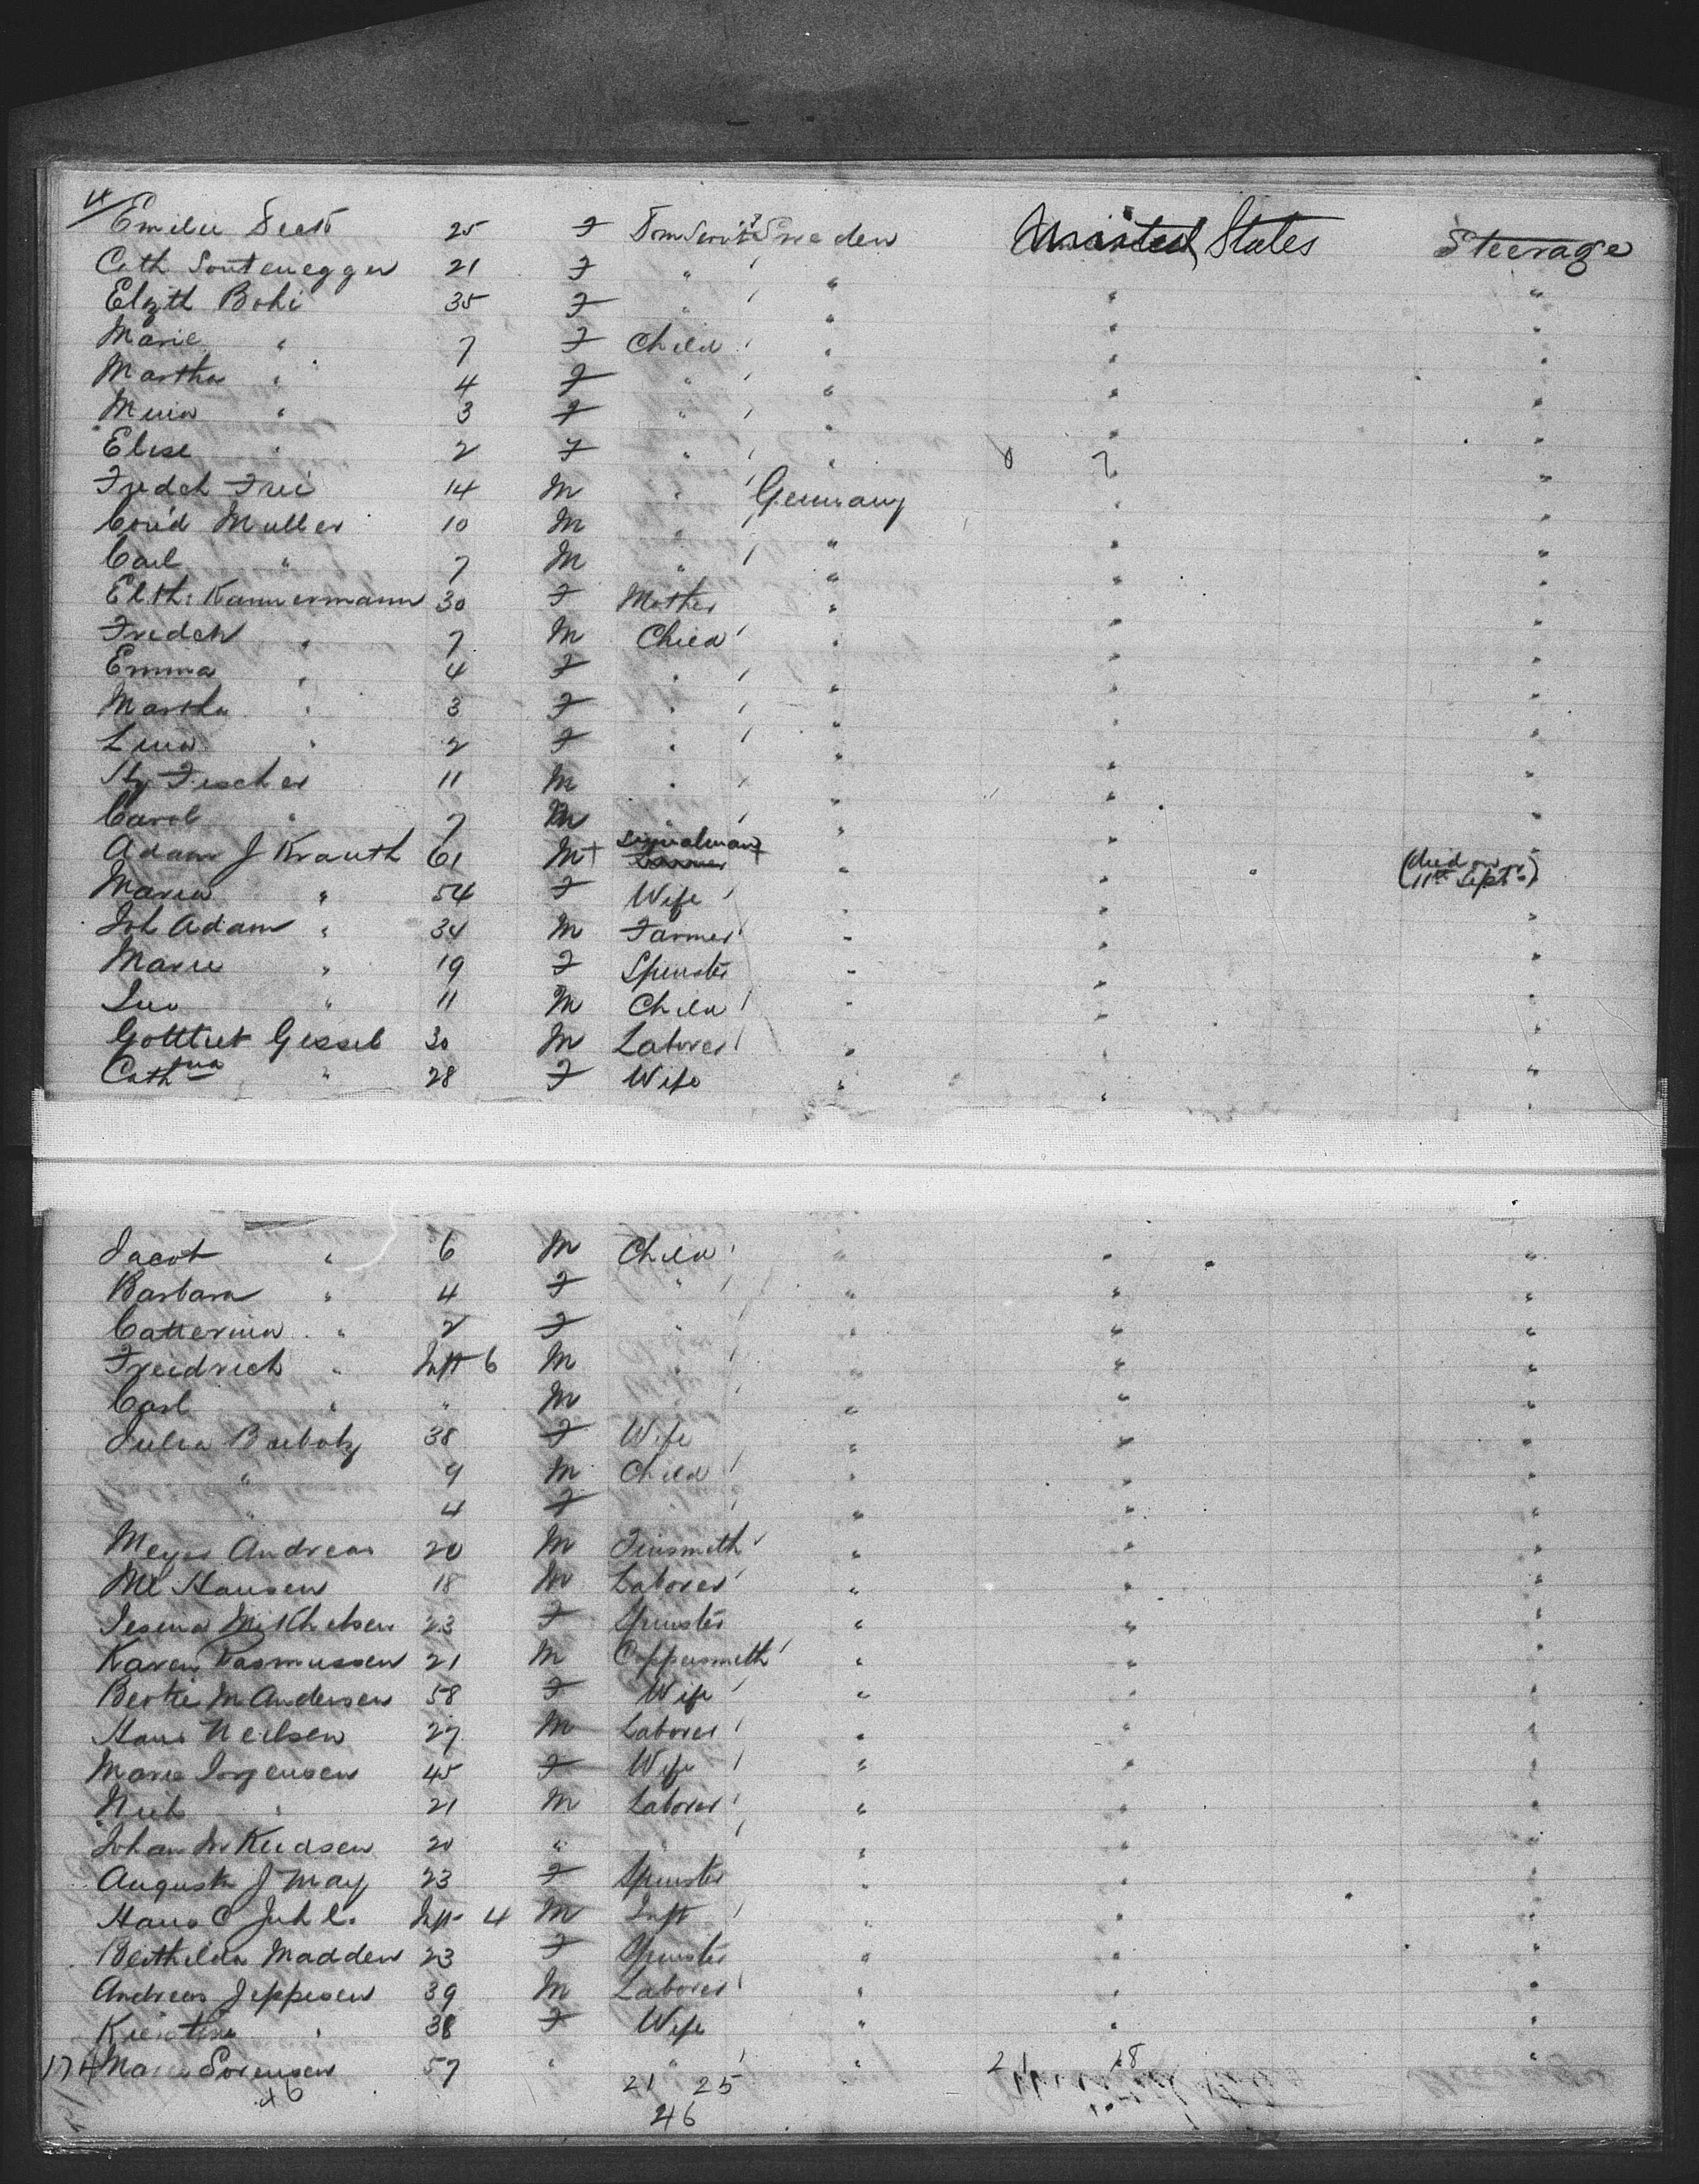 Emilie 25 F Dom Serv't Sweden United States Steerage
Cath Sontenegger 21 F " " " "
Elizth Bohi 35 F " " " "
Marie " 7 F Child " " "
Martha " 4 F " " " "
" 3 F " " " "
Elise " 2 F " " " "
Fredch Frei 14 M " Germany " "
Con'd Muller 10 M " " " "
Carl " 7 M " " " "
Elth: Kannermann 30 F Mother " " "
Fredch " 7 M Child " " "
Emma " 4 F " " " "
Martha " 3 F " " " "
Lina " 2 F " " " "
Hy Fischer 11 M " " " "
Carol " 7 M " " " "
Adam J Krauth 61 M+ Signalman+ " " (died on 11th Sept)
Maria " 54 F Wife " " "
Joh Adam " 34 M Farmer " " "
Marie " 19 F Spinster " " "
" 11 M Child " " "
Gottlieb Gessel 30 M Laborer " " "
Cathna " 28 F Wife " " "
Jacob " 6 M Child " " "
Barbara " 4 F " " " "
Catterina " 2 F " " " "
Freidrich " Inft 6 M " " " "
Carl " " M " " " "
Julia 38 F Wife " " "
" 9 M Child " " "
" 4 F " " " "
Meyer Andreas 20 M Tinsmith " " "
Hansen 18 M Laborer " " "
Mikkelsen 23 F Spinster " " "
Karen Rasmussen 21 M Coppersmith " " "
M Andersen 58 F Wife " " "
Hans Neilsen 27 M Laborer " " "
Marie Jorgensen 45 F Wife " " "
Niels " 21 M Laborer " " "
Johan Knudsen 20 " " " " "
August J May 23 F Spinster " " "
Hans C Juhl. Inft 4 M Inft " " "
Madden 23 F Spinster " " "
Andreas Jeppesen 39 M Laborer " " "
" 38 F Wife " " "
174 Maren Sorensen 57 " " " 21 18 "
46 21 25
46